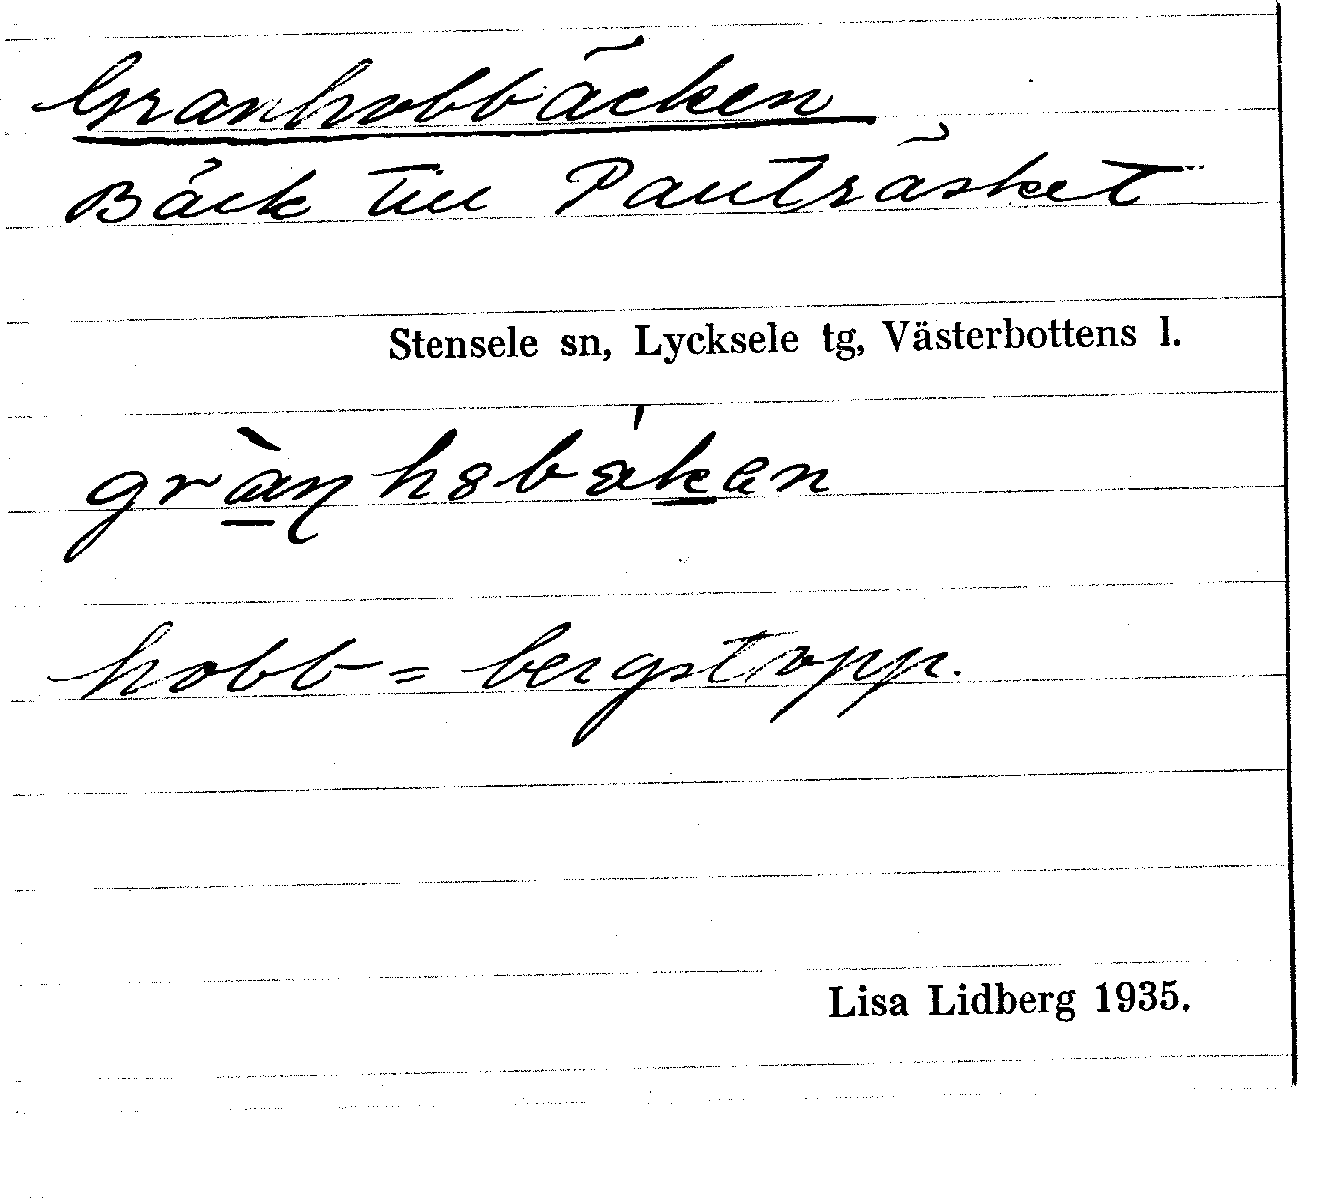 Granhobbäcken
Bäck till Pauträsket
Stensele sn, Lycksele tg, Västerbottens l.
hobb = bergstopp.
Lisa Lidberg 1935.